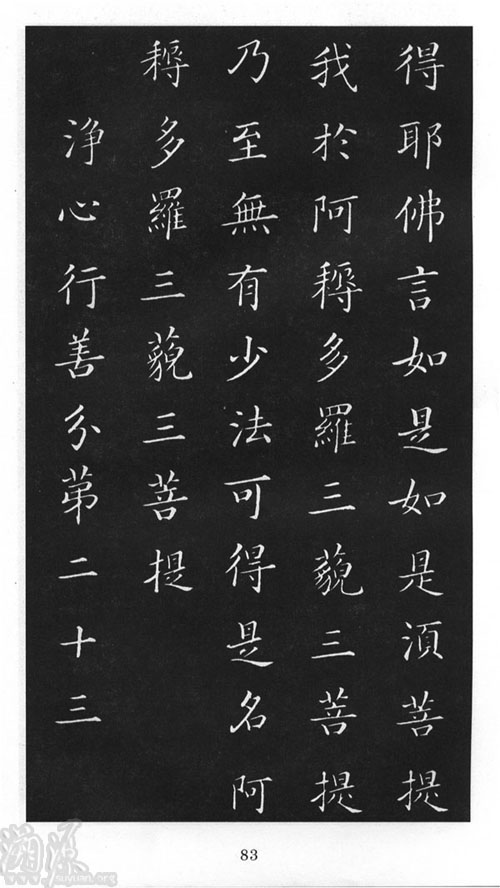 得耶佛言如是如是湏菩提
我於阿耨多羅三藐三菩提
乃至無有少法可得是名阿
耨多羅三藐三菩提
淨心行善分苐二十三
83
溯源
www.suyuan.org